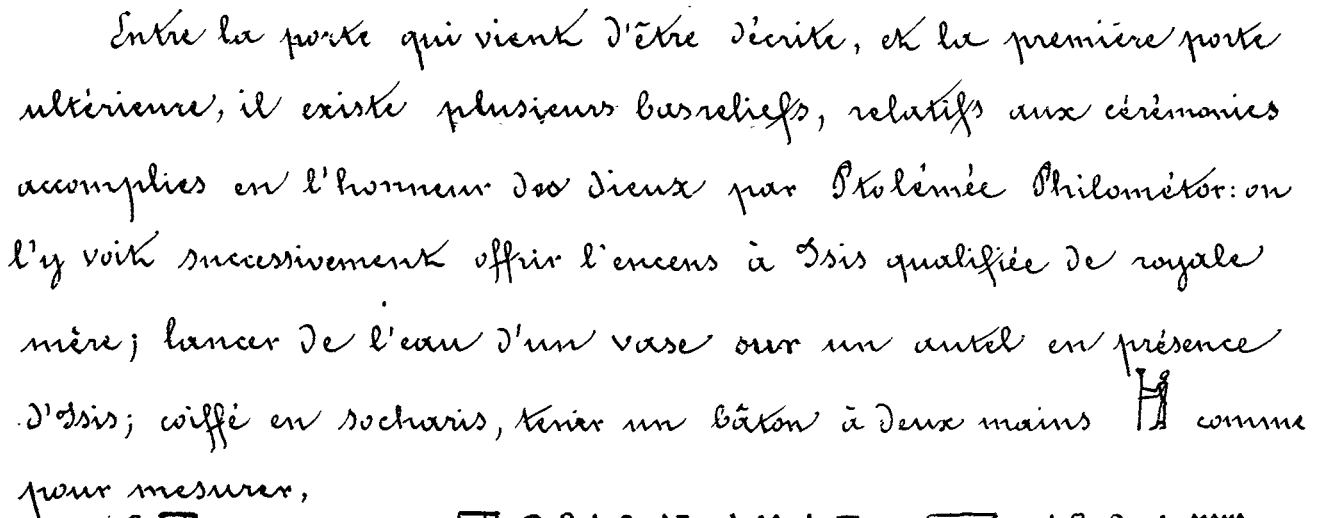 Entre la porte qui vient d'être décrite, et la première porte
ultérieure, il existe plusieurs basreliefs, relatifs aux cérémonies
accomplies en l'honneur des dieux par Ptolémée Philométor: on
l'y voit successivement offrir l'encens à Isis qualifiée de royale
mère; lancer de l'eau d'un vase sur un autel en présence
d'Isis; coiffé en socharis, tenir un bâton à deux mains comme
pour mesurer,